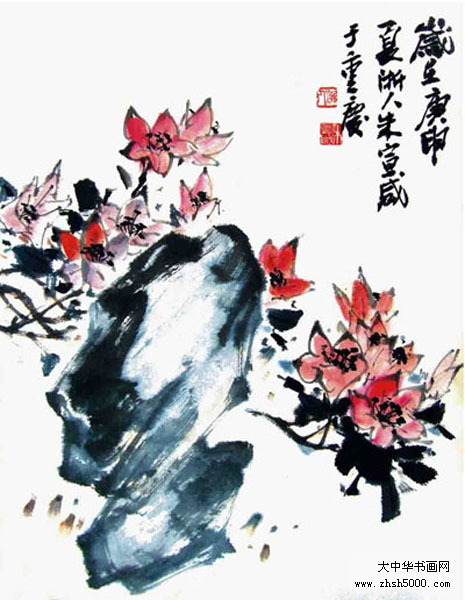 歲在庚申
夏浙人朱宣咸
于重慶
大中华书画网
www.zhsh5000.com